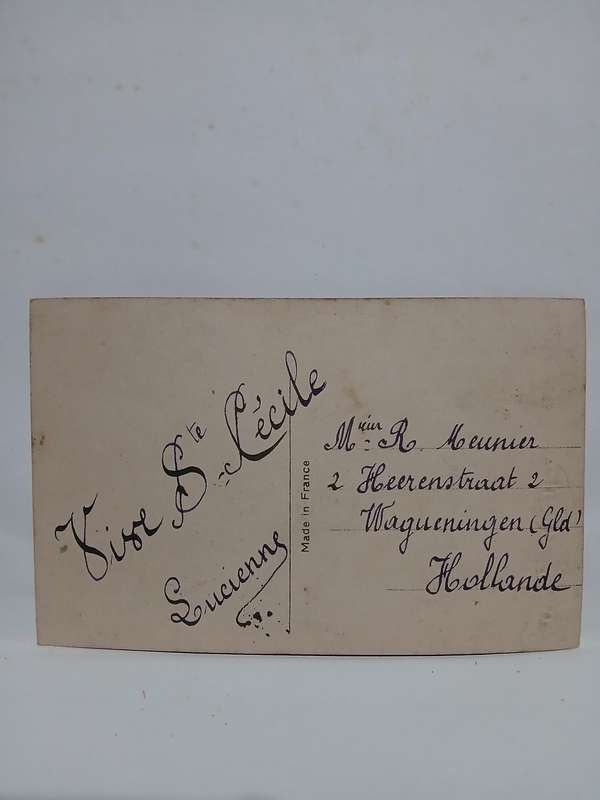 Vive Ste Cécile
Lucienne
Made in France
Mr R. Meunier
2 Heerenstraat 2
Wagueningen (Gld)
Hollande